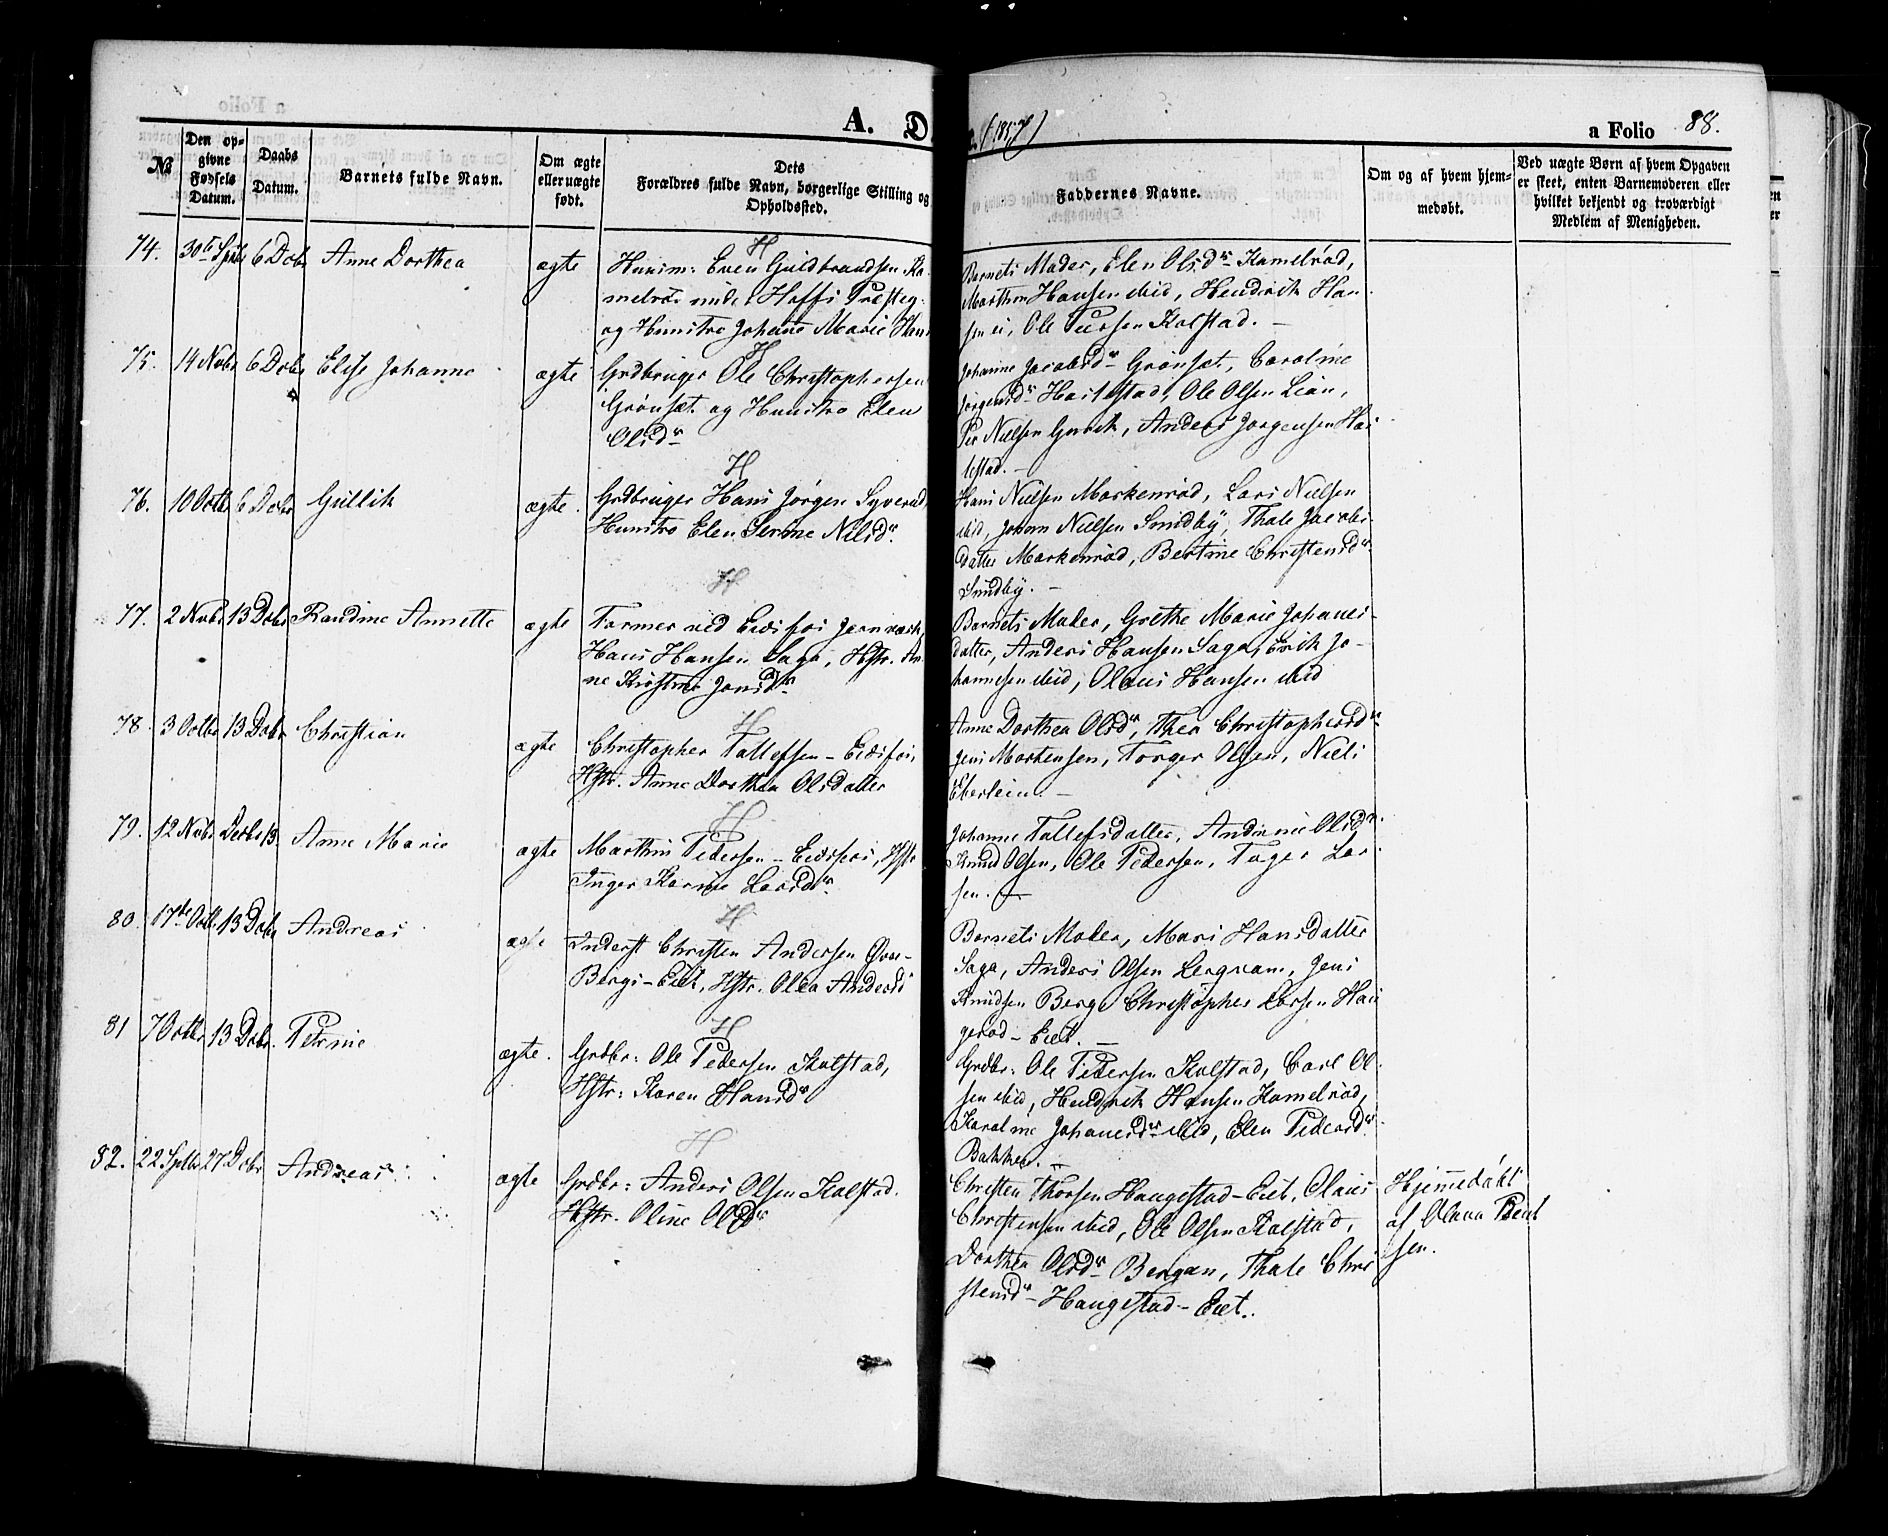 A. D
a. (1857)
a Folio 88.
№
Den op-
givne
Fødsels
Datum.
Daabs
Datum.
Barnets fulde Navn.
Om ægte
eller uægte
født.
Dets
Forældres fulde Navn, borgerlige Stilling og
Opholdssted.
Faddernes Navne.
Om og af hvem hjem-
medøbt.
Ved uægte Børn af hvem Opgaven
er skeet, enten Barnemoderen eller
hvilket bekjendt og troværdigt
Medlem af Menigheden.
74. 30te Sptbr 6 Dcbr Anne Dorthea ægte
H
Huusm: Even Guldbrandsen Ka-
melrød under Hoffs Præsteg.
og Hustro Johane Marie Hans
Barnets Moder, Elen Olsdr Kamelrød,
Marthin Hansen ibid, Hendrik Han-
sen ei, Ole Kolstad. –
75. 14 Nvbr 6 Dcbr Elise Johanne ægte
H
Grdbruger Ole Christophersen
Grønset og Hustro Elen
Olsdr
Johanne Jacobsdr Grønset, Caroline
Jørgensdr Hailestad, Ole Olsen Lian,
Per Nielsen Gurik, Anders Jørgensen Hai
lestad. –
76. 10 Octbr 6 Dcbr Gullik ægte.
H
Grdbruger Hans Jørgen Syverud,
Hustro Elen Serine Nilsdr.
Hans Nielsen Markenrød, Lars Nielsen
ibid, Johan Nielsen Sundby, Thale Jacobs-
datter Markenrød, Bertine Christensdr
Sundby. –
77. 2 Nvbr 13 Dcbr Randine Annette ægte
H
Former ved Eidsfos Jernværk,
Hans Hansen Saga, Hstr. An-
ne Kirstine Jonsdr
Barnets Moder, Grethe Marie Johanes-
datter, Anders Hansen Saga, Erik Jo-
hannesen ibid, Olaus Hansen ibid
78. 3 Octbr 13 Dcbr Christian ægte
H
Christopher Tallefsen – Eidsfos,
Hstr. Anne Dorthea Olsdatter
Anne Dorthea Olsdr, Thea Christophersdr
Jens Mortensen, Torger Olsen, Niels
Eberlein. –
79. 12 Nvbr Decbr 13 Anne Marie ægte
H
Marthin Pedersen – Eidsfos, Hstr
Inger Karine Larsdr
Johanne Tallefsdatter, Andrine Olsdr.
Knud Olsen, Ole Pedersen, Tager Lar-
sen. –
80. 17de Octbr 13 Dcbr Andreas ægte
H
Inderst Christen Andersen Øvre-
Bergs-Eiet, Hstr. Olea Andersd
Barnets Moder, Mari Hansdatter
Saga, Anders Olsen Lergram, Jens
Knudsen Berg, Christopher Larsen Hau
gerød – Eiet. –
81 7 Octbr 13 Dcbr. Petrine ægte.
H
Grdbr: Ole Pedersen Kolstad,
Hstr: Karen Hansdr
Grdbr: Ole Pedersen Kolstad, Carl Ol-
sen ibid, Hendrik Hansen Kamelrød,
Karoline Johanesdr ibid, Elen Pedersdr.
Bakken. –
82. 22 Sptbr 27 Dcbr Andreas ægte
H
Grdbr: Anders Olsen Kolstad.
Hstr. Oline Olsdr
Christen Thorsen Haugestad – Eiet, Olaus
Christensen ibid, Ole Olsen Kolstad,
Dorthea Olsdr – Bergan, Thale Chri
stensdr – Haugestad – Eiet.
Hjemmedøbt
af Olava Bent
sen.